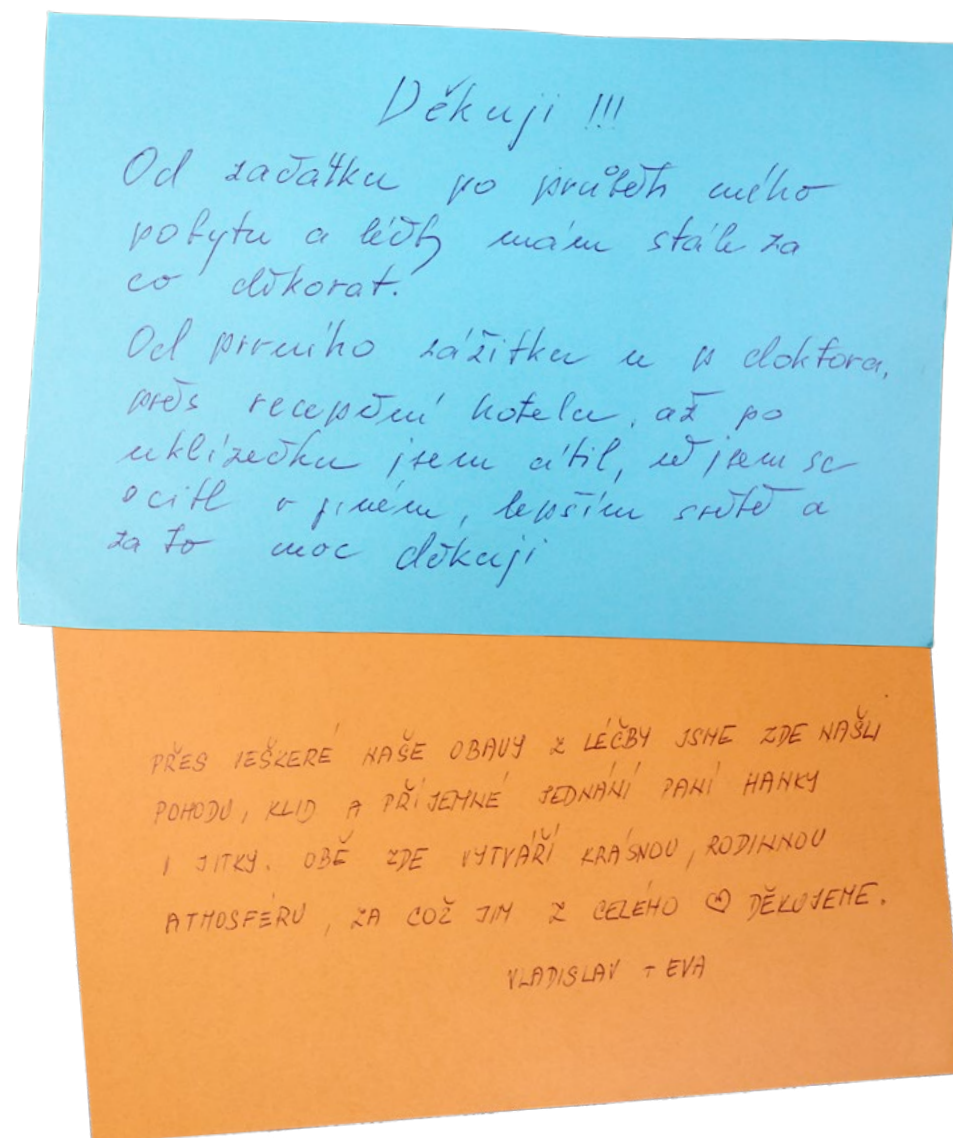 Děkuji !!!
Od začátku po průběh mého
pobytu a léčby mám stále za
co děkovat.
Od prvního zážitku u p doktora,
přes recepční hotelu, až po
uklízečku jsem cítil, že jsem se
ocitl v jiném, lepším světě a
za to moc děkuji
PŘES VEŠKERÉ NAŠE OBAVY Z LÉČBY JSME ZDE NAŠLI
POHODU, KLID A PŘÍJEMNÉ JEDNÁNÍ PANÍ HANKY
I JITKY. OBĚ ZDE VYTVÁŘÍ KRÁSNOU, RODINNOU
ATMOSFÉRU, ZA COŽ JIM Z CELÉHO ♡ DĚKUJEME.
VLADISLAV + EVA